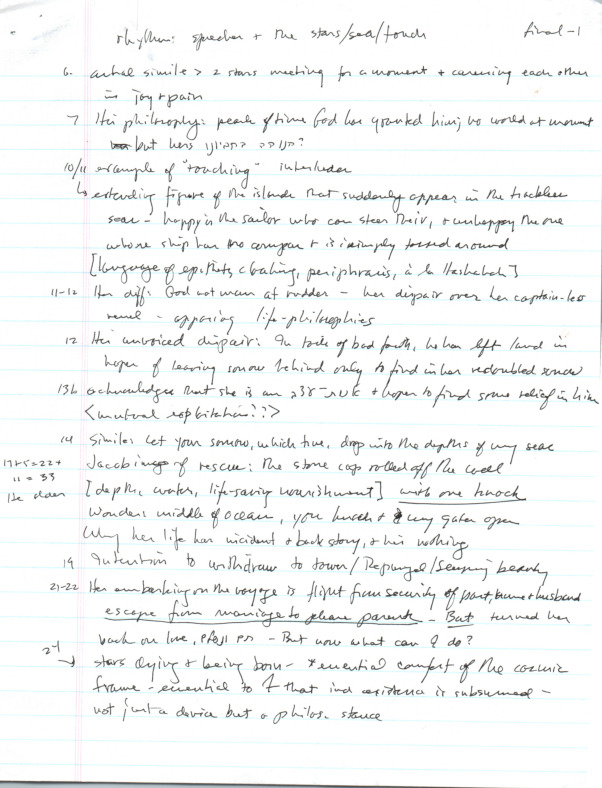 rhythm: speeches + the stars/sea/touch
final-1
6. actual simile > 2 stars meeting for a moment + caressing each other
in joy + pain
7 His philosophy: pearls of time God has granted him; no world at moment
but hers
10/11 example of "touching" interludes
extending figure of the islands that suddenly appear in the trackless
seas - happy is the sailor who can steer their, + unhappy the one
whose ship has no compass + is simply tossed around
[language of epithets, cloaking, periphrasis, à la Haskalah]
11-12 Her diff: God not man at rudder - her despair over her captain-less
vessel - opposing life-philosophies
12 Her unvoiced despair: In tale of bad faith, he has left land in
hopes of leaving sorrow behind only to find in her redoubled sorrow
13b acknowledges that she is an + hopes to find some relief in him
<mutual exploitation??>
14 Simile: let your sorrow, which true, drop into the depths of my sea
Jacob image of rescue: the stone cap rolled off the well
17+5=22+
11 = 33
He does
[depth, water, life-saving nourishment] with one knock
Wonders: middle of ocean, you knock + my gates open
Why her life has incident + back story, + his nothing
19 Intention to withdraw to tower/Rapunzel/Sleeping beauty
21-22 Her embarking on the voyage is flight from security of past, home + husband
escape from marriage to please parents - But turned her
back on love, - But now what can I do?
24
→ stars dying + being born - *essential comfort of the cosmic
frame - essential to that ind existence is subsumed -
not just a device but a philos. stance